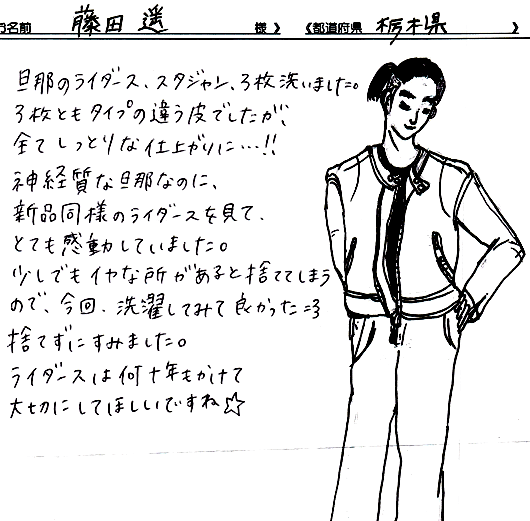 お名前 藤田 遥 様》 《都道府県 栃木県 》
旦那のライダース、スタジャン、3枚洗いました。
3枚ともタイプの違う皮でしたが、
全てしっとりな仕上がりに…!!
神経質な旦那なのに、
新品同様のライダースを見て、
とても感動していました。
少しでもイヤな所があると捨ててしまう
ので、今回、洗濯してみて良かった=3
捨てずにすみました。
ライダースは何十年もかけて
大切にしてほしいですね☆